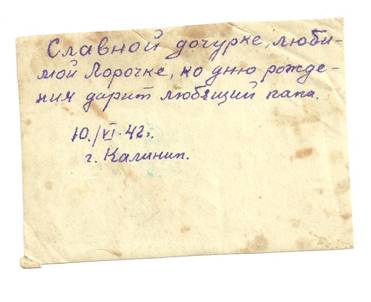 Славной дочурке, люби-
мой Лорочке, ко дню рожде-
ния дарит любящий папа.
10./VI-42г.
г. Калинин.